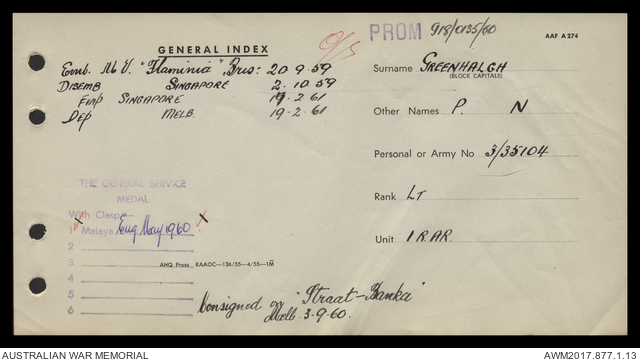 GENERAL INDEX
O/S
PROM 918/0135/60
AAF A 274
Emb. M V. "Flaminia" Bris: 20-9-59
DISEMB SINGAPORE 2-10-59
Emb SINGAPORE 19-2-61
DEP MELB. 19-2-61
Surname GREENHALGH
(BLOCK CAPITALS)
Other Names P. N
Personal or Army No 3/35104
Rank LT
Unit 1 RAR.
THE GENERAL SERVICE
MEDAL
With Clasps
1 Malaya Eng May 1960
2
3
4
5
6
AHQ Press RAAOC—136/55—4/55—1M
Consigned on "Straat-Banka"
Melb 3-9-60.
AUSTRALIAN WAR MEMORIAL
AWM2017.877.1.13